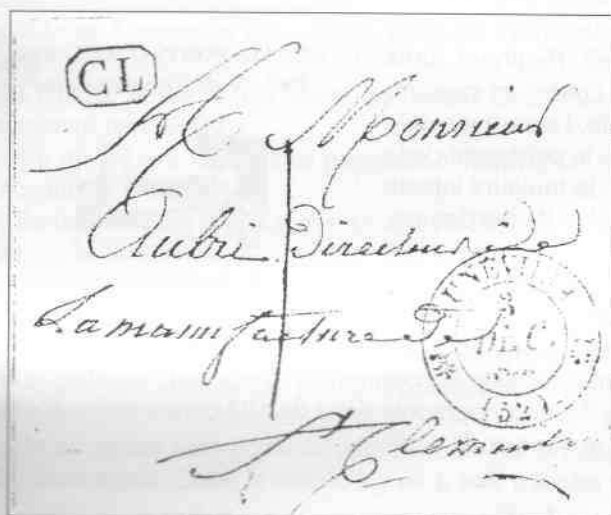 CL
A Monsieur
Aubri Directeur de
La manufacture de
St Clement
LUNEVILLE
3
DEC.
(52)